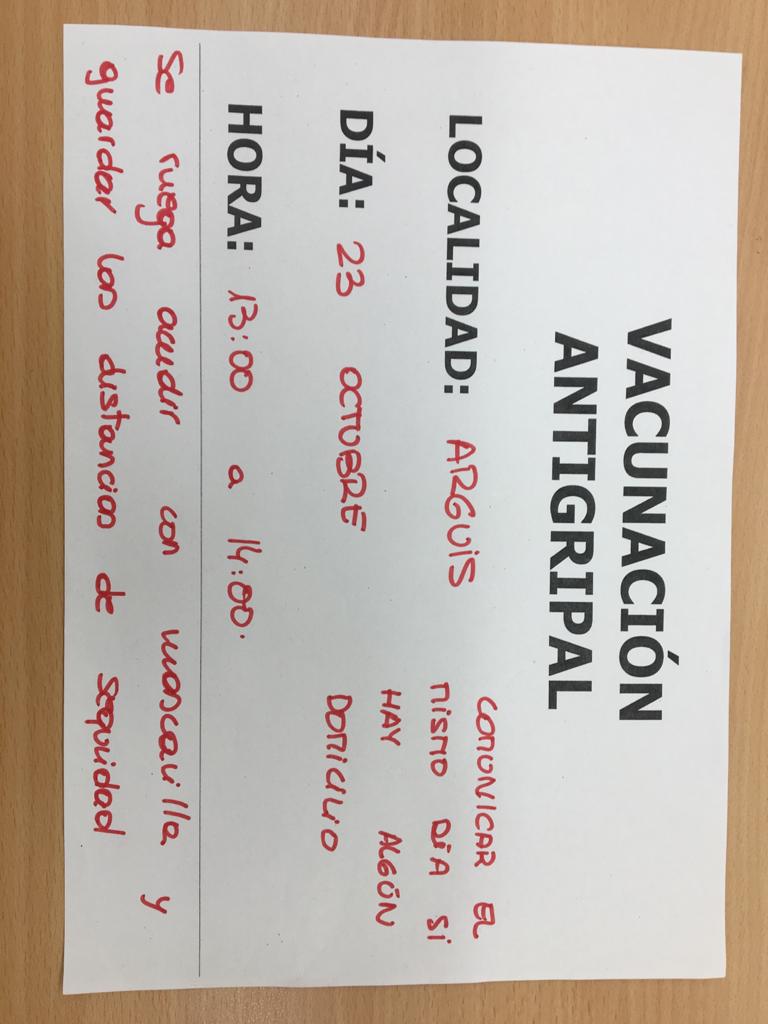 VACUNACIÓN
ANTIGRIPAL
LOCALIDAD: ARGUIS
COMUNICAR EL
MISMO DIA SI
HAY ALGÚN
DOMICILIO
DÍA: 23 OCTUBRE
HORA: 13:00 a 14:00.
Se ruega acudir con mascarilla y
guardar las distancias de seguridad